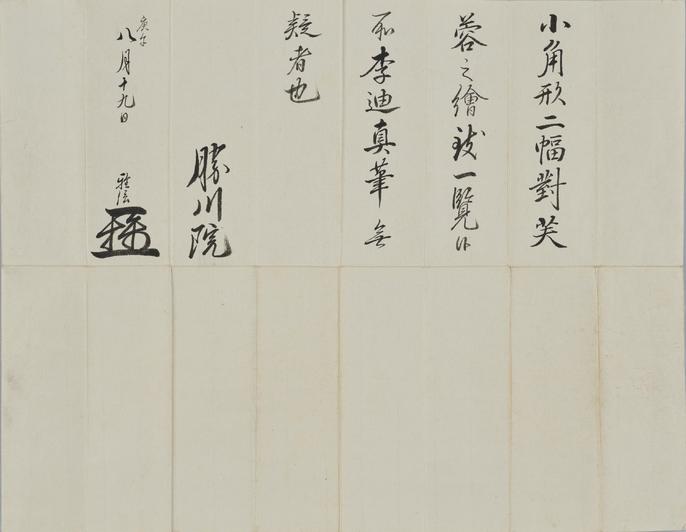 小角形二幅對芙
蓉之繪致一覽候
所李迪真筆無
疑者也
勝川院
庚午
八月十九日
雅信